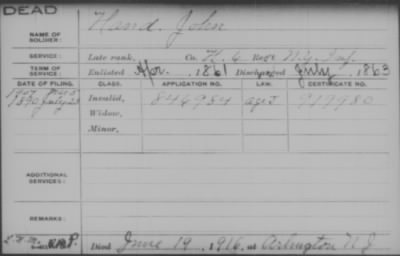 DEAD
NAME OF SOLDIER: Hand, John
SERVICE: Late rank, Co. K, 6 Reg't N.J. Inf.
TERM OF SERVICE: Enlisted Apr. 1861 Discharged July, 1863
DATE OF FILING. CLASS. APPLICATION NO. LAW. CERTIFICATE NO.
1890 July 23 Invalid, 846984
Widow,
Minor,
ADDITIONAL SERVICES:
REMARKS:
Died June 19, 1916, at Arlington N J